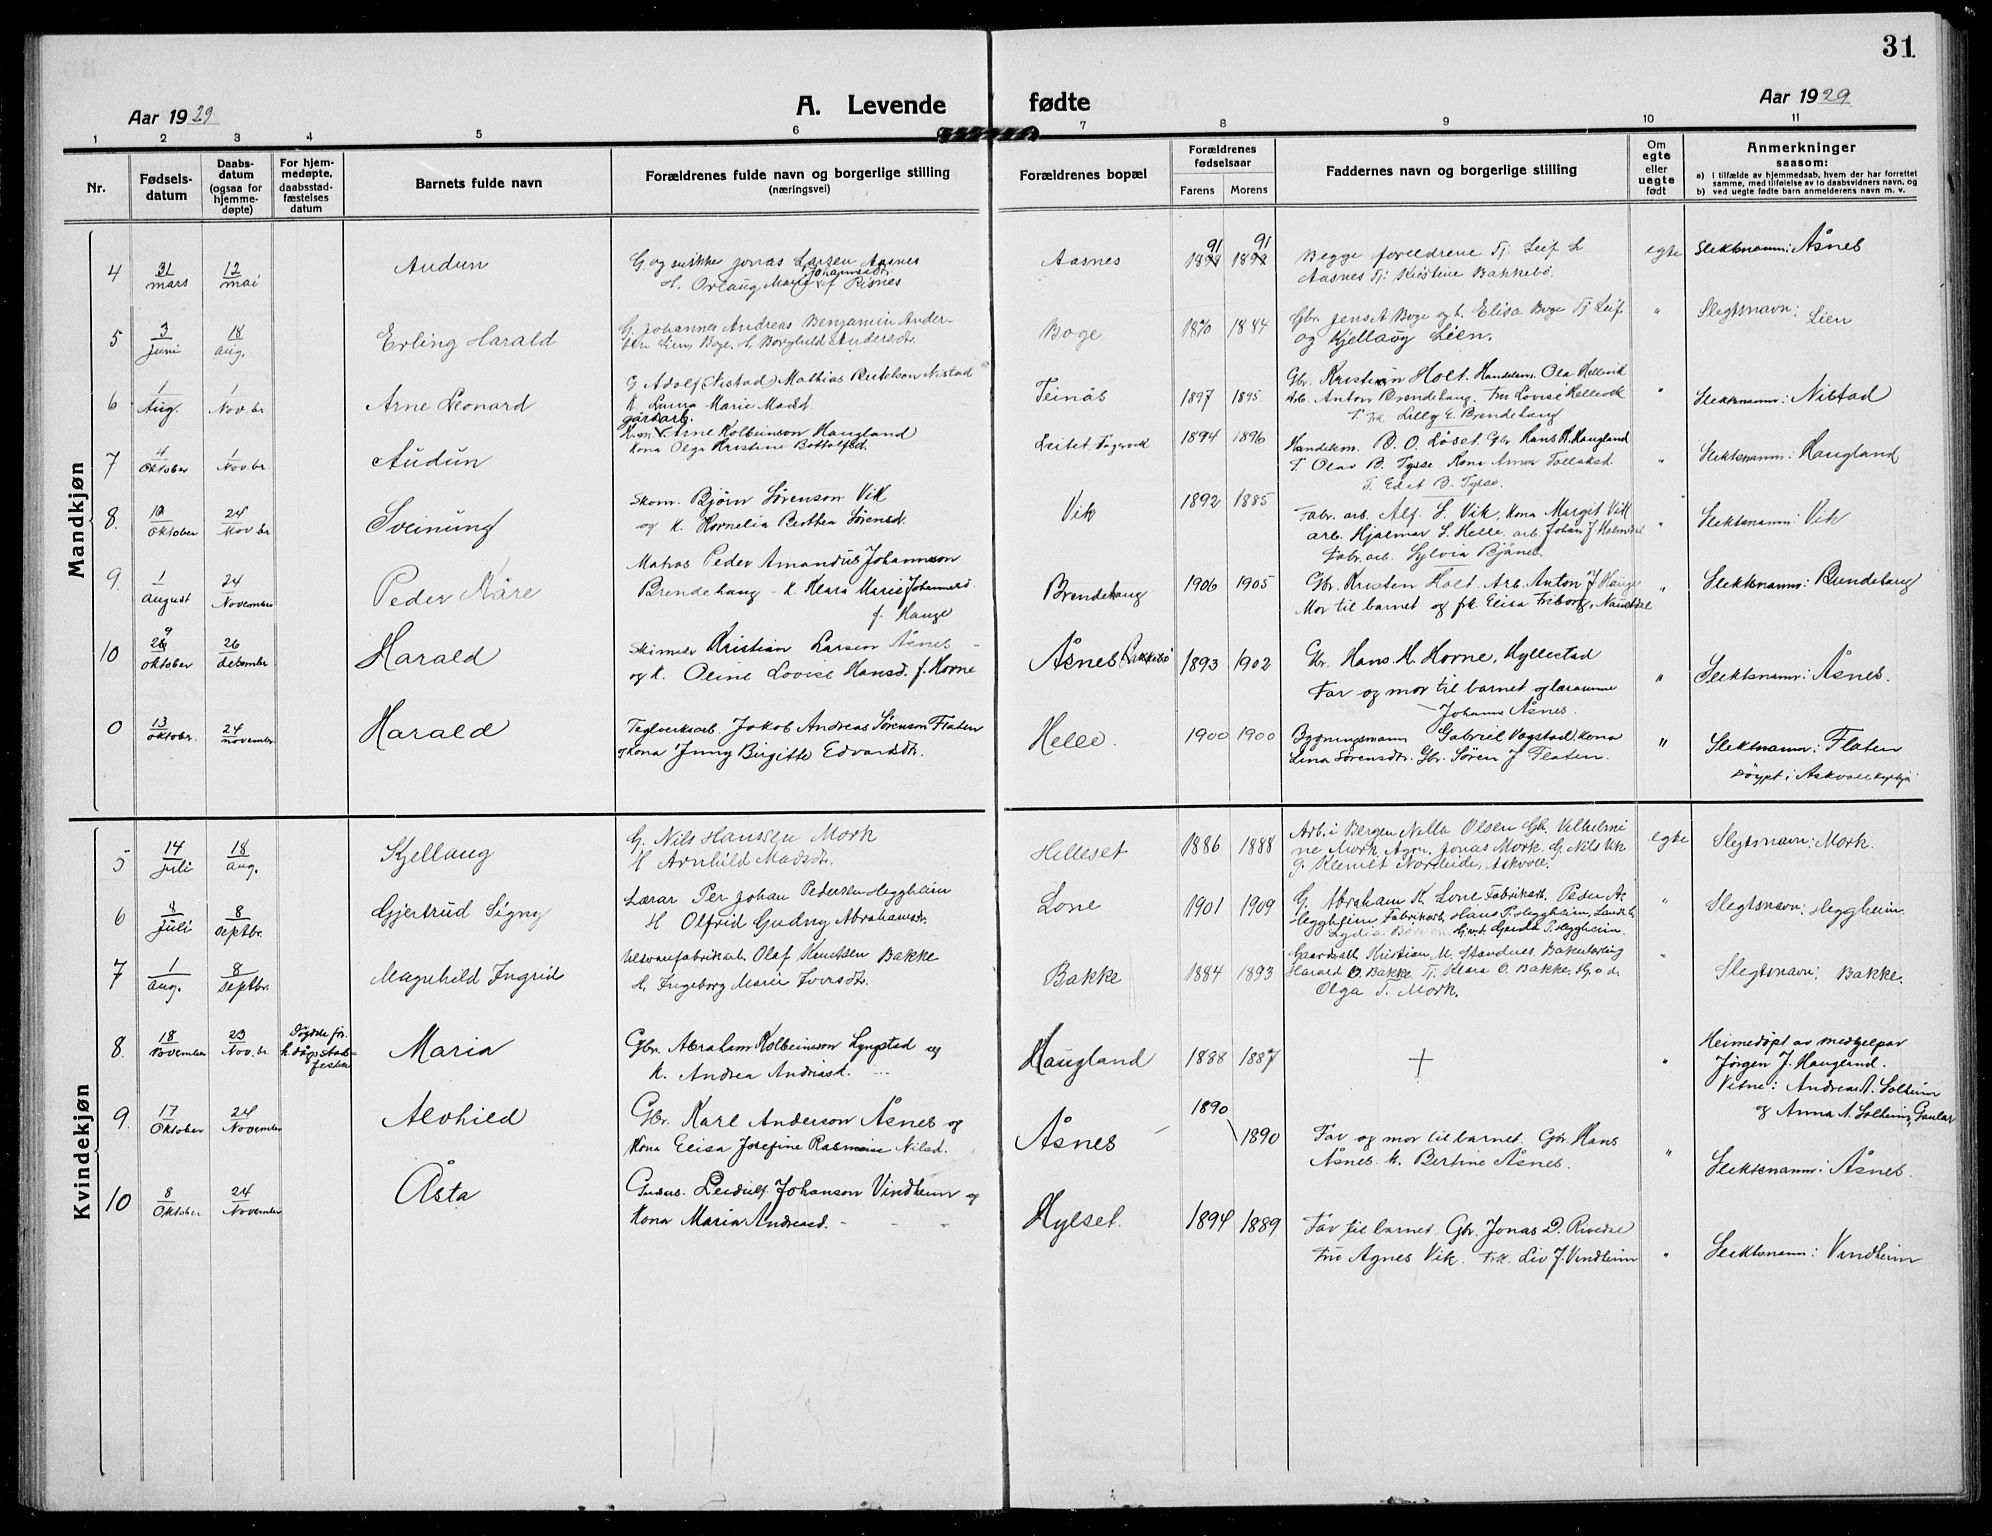 31
Aar 1929
A. Levende fødte
Aar 1929
1 2 3 4 5 6 7 8 9 10 11
Nr.
Fødsels-
datum
Daabs-
datum
(ogsaa for
hjemme-
døpte)
For hjem-
medøpte,
daabsstad-
fæstelses
datum
Barnets fulde navn
Forældrenes fulde navn og borgerlige stilling
(næringsvei)
Forældrenes bopæl
Forældrenes
fødselsaar
Farens Morens
Faddernes navn og borgerlige stilling
Om
egte
eller
uegte
født
Anmerkninger
saasom:
a) I tilfælde av hjemmedaab, hvem der har forrettet
samme, med tilføielse av to daabsvidners navn, og
b) ved uegte fødte barn anmelderens navn m. v.
Mandkjøn
4
31 mars
12 mai
Audun
G. og snikker Jonas Larsen Aasnes
H. Orlaug Marie Johannesdtr. f. Risnes
Aasnes
91 91
Begge foreldrene Tj. Leif L
Aasnes Tj. Kristine Bakkebø.
egte
Slektsnamn: Åsnes
5
3 juni
18 aug.
Erling Harald
G. Johannes Andreas Benjamin Ander-
sen Lien, Boge. H. Borghild Andersdtr.
Boge
1870 1884
Gbr. Jens A Boge og h. Elisa Boge Tj Leif
og Kjellaug Lien.
"
Slegtsnavn: Lien
6
1 Aug.
1 Nov.br
Arne Leonard
G Adolf (Nistad) Mathias Bertelson Nistad
K. Laura Marie Madsd.
Teinås
1897 1895
Gbr. Kristian Holt. Handelsm. Ola Hellevik
Arb. Anton Brendehaug. Fru Lovise Hellevik
Frk Lilly E. Brendehaug
"
Slektsnamn: Nistad
7
4 Oktober
1 Nov.br
Audun
gårdarb.
Arne Kolbeinson Haugland
Kona Olga Kristine Bottolfsd.
Leitet, Fagervik
1894 1896
Handelsm. B. O. Løset. Gbr. Hans K. Haugland
T. Olav B. Tysse Kona Anna Tollaksd.
T. Edit B. Tysse.
"
Slektsnamn: Haugland
8.
10 Oktober
24 Nov br
Sveinung
Skom. Bjørn Sørenson Vik
og K. Kornelia Berthea Sørensd.
Vik
1892 1885
Fabr. arb. Alf. S. Vik, Kona Margit Vik
arb. Hjalmar S. Helle, arb. Johan J Holmedal
Fabr. arb. Sylvia Bjånes
"
Slektsnamn: Vik
9.
1 August
24 November
Peder Kåre
Matros Peder Amandus Johannson
Brendehaug - K. Klara Marie Johannesd.
f. Hauge
Brendehaug
1906 1905
Gbr. Kristen Holt. Arb. Anton J Hauge
Mor til barnet og frk. Elisa Friborg, Naustdal
"
Slektsnamn: Brendehaug
10
29 Oktober
26 desember
Harald
Skinnar Kristian Larsen Åsnes
og K. Oline Lovise Hansd. f. Horne
Åsnes (Bakkebø
1893 1902
Gbr. Hans H. Horne, Hyllestad
Far og mor til barnet og lærarinne
Johanne Åsnes.
"
Slektsnamn: Åsnes.
0
13 oktobr.
24 november
Harald
Teglverksarb Jakob Andreas Sørenson Flaten
og Kona Jenny Birgitte Edvardsdtr.
Helle.
1900 1900
Bygningsmann Gabriel Vagstad, kona
Lina Sørensdtr. Gbr. Søren J Flaten.
"
Slektsnamn: Flaten
Døypt i Askvoll kyrkje
Kvindekjøn
5
14 juli
18 aug.
Kjellaug
G. Nils Hanssen Mork
H Arnhild Madsdtr.
Helleset
1886 1888
Arb. i Bergen Nilla Olsen Gb. Vilhelmi
ne Mork Agn. Jonas Mork. G. Nils Vik
G. Klemet Nordeide, Askvoll.
egte
Slegtsnavn: Mork.
6
8 juli
8 septbr.
Gjertrud Signy
Lærar Per Johan Pedersen Heggheim
H Olfrid Gudny Abrahamsdtr.
Lone
1901 1909
G. Abraham K. Lone Fabrikarb. Peder A.
Heggheim Fabrikarb. Hans P. Heggheim,
Lydia Gerda P. Heggheim.
"
Slegtsnavn: Heggheim.
7
1 aug.
8 septbr.
Magnhild Ingrid
Ulvarefabrikarb. Olaf Knutsen Bakke
H. Ingeborg Marie Iversdtr.
Bakke
1884 1893
Gaardsarb. Kristian M. Standnes. Bakerlærling
Harald O. Bakke Tj. Klara O. Bakke.
Olga T. Mork.
"
Slegtsnavn: Bakke.
8.
18 November
23 Nov. br
Døydde for
h.dåpsstad-
festen
Maria
Gbr. Abraham Kolbeinson Lyngstad og
K. Andrea Andreasd.
Haugland
1888 1887
+
"
Heimedøpt av medhjelpar
Jørgen J. Haugland.
Vitne: Andreas A. Solheim
og Anna A. Solheim, Gaular
9.
17 Oktober
24 November
Alvhild
Gbr. Karl Anderson Åsnes og
Kona Elisa Josefine Rasmine Nilsd.
Åsnes
1890 1890
Far og mor til barnet. Gbr. Hans
Åsnes. K. Bertine Åsnes.
"
Slektsnamn: Åsnes.
10
8 Oktober
24 November
Åsta
Leidulf Johanson Vindheim og
Kona Maria Andreasd.
Hylset.
1894 1889
Far til barnet. Gbr. Jonas D. Rivedal
Fru Agnes Vik. Frk. Liv J. Vindheim
"
Slektsnamn: Vindheim